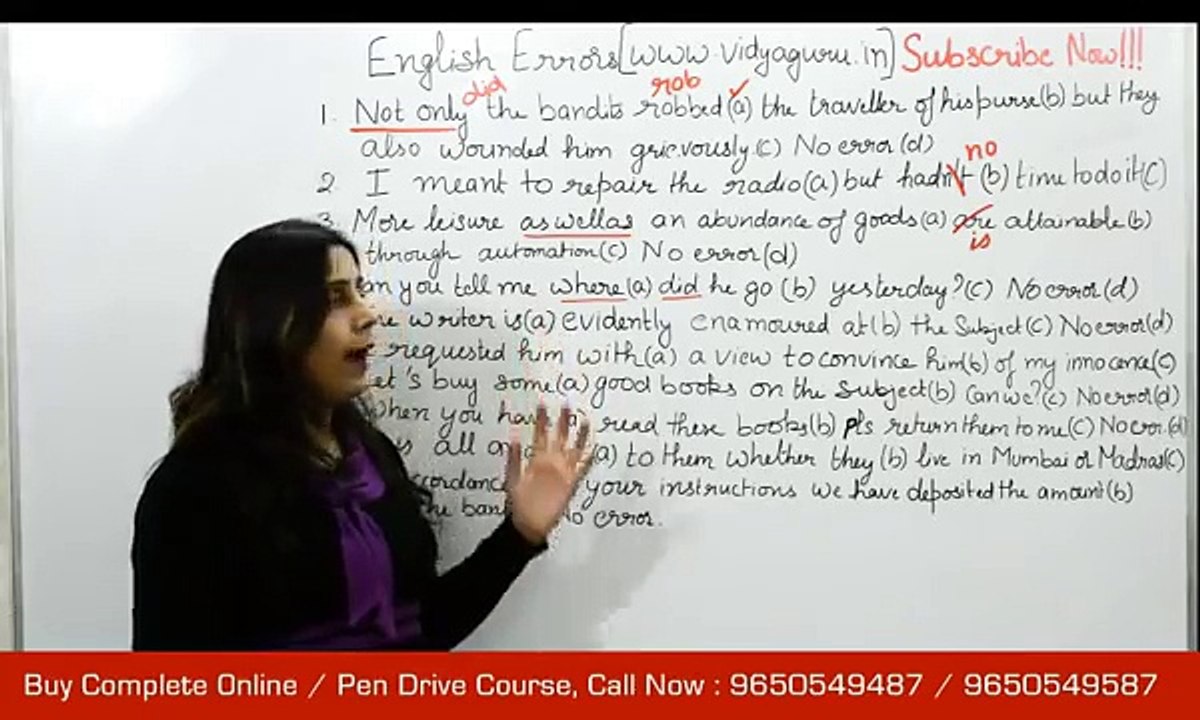 English Errors[www.vidyaguru.in] Subscribe Now!!!
did rob ✓
1. Not only the bandits robbed (a) the traveller of his purse(b) but they
also wounded him grievously.(c) No error (d)
no
2. I meant to repair the radio(a) but hadn't (b) time to do it(c)
3. More leisure as well as an abundance of goods(a) are attainable(b)
is
through automation(c) No error(d)
you tell me where(a) did he go (b) yesterday?(c) No error(d)
writer is(a) evidently enamoured at(b) the Subject(c) No error(d)
requested him with(a) a view to convince him(b) of my innocence(c)
let's buy some(a) good books on the Subject(b) Can we?(c) No error(d)
When you have (a) read these books(b) pls return them to me(c) No error.(d)
all (a) to them whether they (b) live in Mumbai or Madras(c)
your instructions we have deposited the amount(b)
the No error.
Buy Complete Online / Pen Drive Course, Call Now : 9650549487 / 9650549587